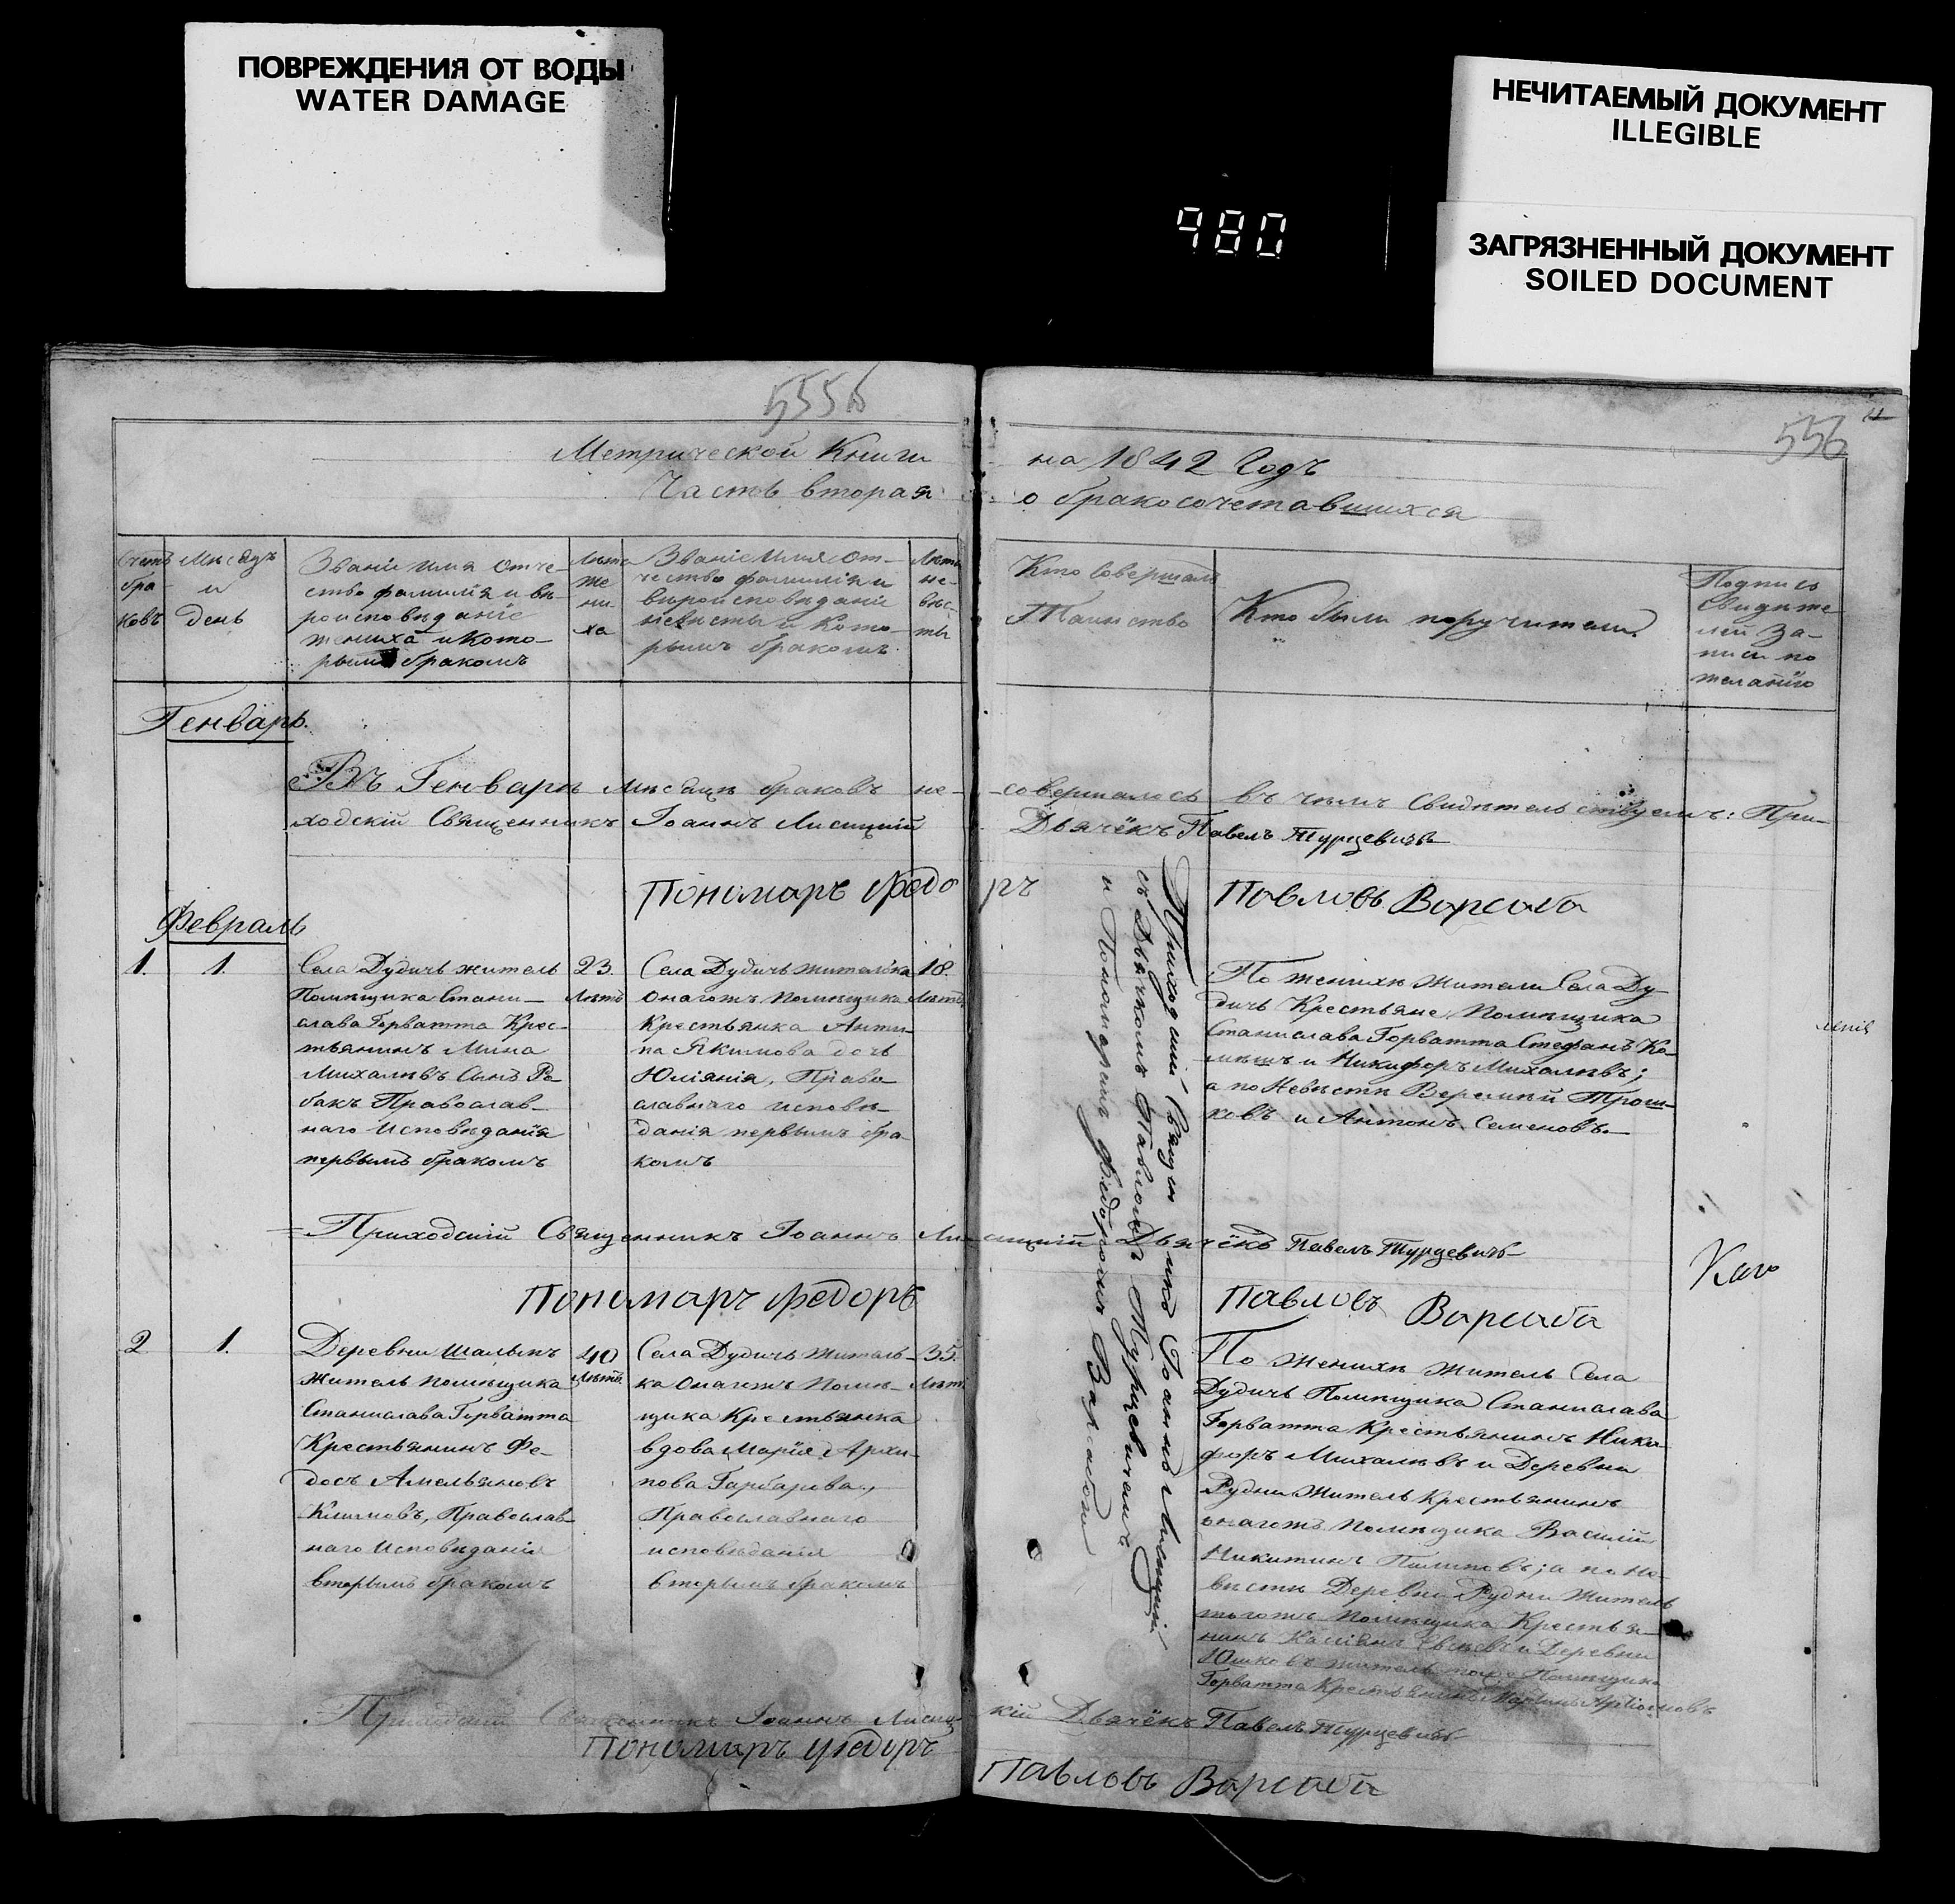 ПОВРЕЖДЕНИЯ ОТ ВОДЫ
WATER DAMAGE
НЕЧИТАЕМЫЙ ДОКУМЕНТ
ILLEGIBLE
ЗАГРЯЗНЕННЫЙ ДОКУМЕНТ
SOILED DOCUMENT
980
555б
556
Метрической Книги на 1842 Годъ
Часть вторая о бракосочетавшихся
Счетъ
бра-
ковъ
Мѣсяцъ
и
день
Званіе имя отче-
ство фамилія и вѣ-
роисповѣданіе
жениха и кото-
рымъ бракомъ
Лѣта
же-
ни-
ха
Званіе имя от-
чество фамилія и
вѣроисповѣданіе
невѣсты и кото-
рымъ бракомъ
Лѣта
не-
вѣс-
ты
Кто совершалъ
Таинство
Кто были поручители
Подпись
свидѣте-
лей за-
писи по
желанію
Генварь.
Въ Генварѣ Мѣсяцѣ браковъ не- -совершалось въ чемъ Свидѣтельствуемъ: При-
ходскій Священникъ Іоаннъ Лисицкій Дьячёкъ Павелъ Турцевичъ
Пономарь Федоръ Павловъ Варсаба
Февраль
1. 1.
Села Дудичъ житель
Помѣщика Стани-
слава Горватта Крес-
тьянинъ Мина
Михалѣвъ Сынъ Ра-
бакъ Православ-
наго Исповѣданія
первымъ бракомъ
23.
Лѣтъ
Села Дудичъ жителька
Онагожъ Помѣщика
Крестьянка Анти-
па Якимова дочь
Юліянія, Право-
славнаго исповѣ-
данія первымъ бра-
комъ
18.
Лѣтъ
Приходскій Священникъ Іоаннъ Лисицкій
съ Дьячкомъ Павломъ Турцевичемъ
и Пономаремъ Федоромъ Варсабою
По женихѣ жители Села Ду-
дичъ Крестьяне Помѣщика
Станислава Горватта Стефанъ Ко-
и Никифоръ Михалѣвъ;
а по Невѣстѣ Веремѣй Трош-
ковъ и Антонъ Семеновъ.
Приходскій Священникъ Іоаннъ Лисицкій Дьячёкъ Павелъ Турцевичъ
Пономарь Федоръ Павловъ Варсаба
2 1.
Деревни
житель помѣщика
Станислава Горватта
Крестьянинъ Фе-
досъ Амельяновъ
Климовъ, Православ-
наго Исповѣданія
вторымъ бракомъ
40
Лѣтъ
Села Дудичъ житель-
ка Онагожъ Помѣ-
щика Крестьянка
вдова Марія Архи-
пова Гарбарева,
Православнаго
исповѣданія
вторымъ бракомъ
35.
Лѣтъ
По женихѣ житель Села
Дудичъ Помѣщика Станислава
Горватта Крестьянинъ Ники-
форъ Михалѣвъ и Деревни
Рудни житель Крестьянинъ
онагожъ помѣщика Василій
Никитинъ а по Не-
вѣстѣ Деревни Рудни житель
тогожъ помѣщика Крестья-
нинъ и Деревни
житель Помѣщика
Горватта Крестьянинъ
Приходскій Священникъ Іоаннъ Лисицкій Дьячёкъ Павелъ Турцевичъ
Пономарь Федоръ Павловъ Варсаба